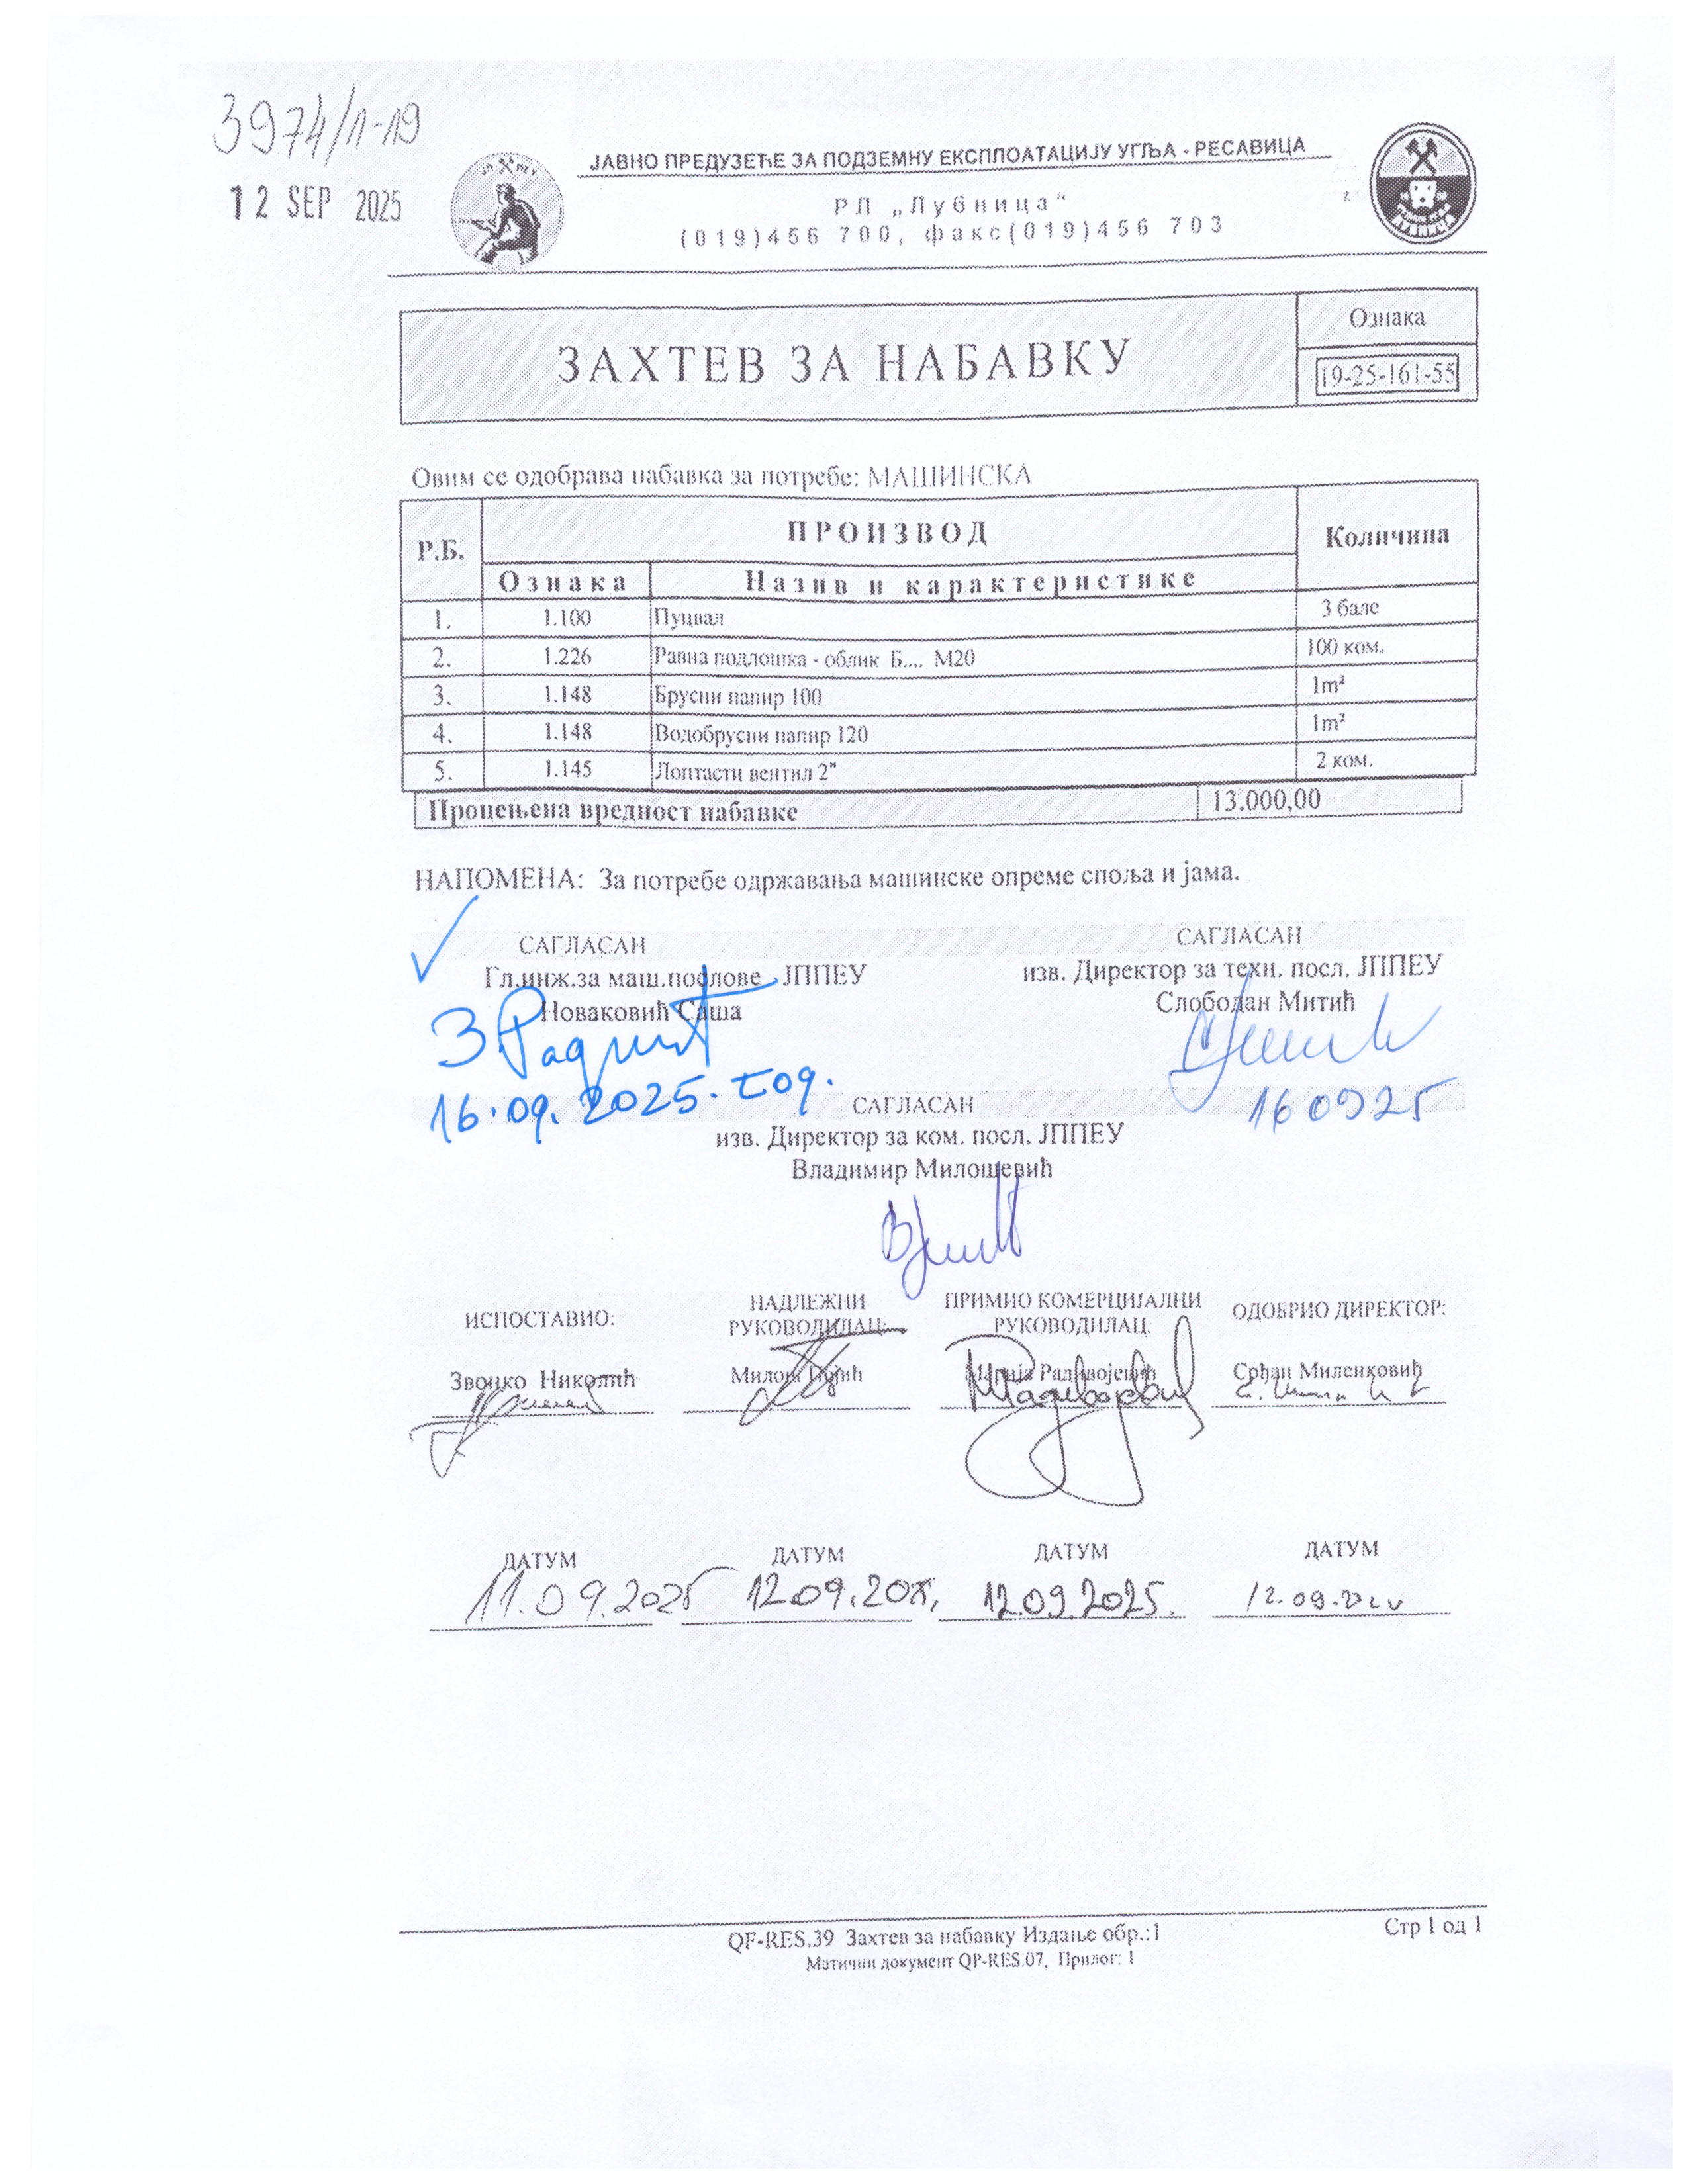 3974/1-19
12 SEP 2025
ЈАВНО ПРЕДУЗЕЋЕ ЗА ПОДЗЕМНУ ЕКСПЛОАТАЦИЈУ УГЉА - РЕСАВИЦА
РЛ „Лубница“
(019)456 700, факс(019)456 703
ЗАХТЕВ ЗА НАБАВКУ
Ознака
19-25-161-55
Овим се одобрава набавка за потребе: МАШИНСКА
Р.Б. ПРОИЗВОД Количина
Ознака Назив и карактеристике
1. 1.100 Пуцвал 3 бале
2. 1.226 Равна подлошка - облик Б.... М20 100 ком.
3. 1.148 Брусни папир 100 1m²
4. 1.148 Водобрусни папир 120 1m²
5. 1.145 Лоптасти вентил 2" 2 ком.
Процењена вредност набавке 13.000,00
НАПОМЕНА: За потребе одржавања машинске опреме споља и јама.
САГЛАСАН САГЛАСАН
Гл.инж.за маш.послове ЈППЕУ изв. Директор за техн. посл. ЈППЕУ
Новаковић Саша Слободан Митић
16.09.2025. год. 160925
САГЛАСАН
изв. Директор за ком. посл. ЈППЕУ
Владимир Милошевић
ИСПОСТАВИО: НАДЛЕЖНИ РУКОВОДИЛАЦ: ПРИМИО КОМЕРЦИЈАЛНИ РУКОВОДИЛАЦ: ОДОБРИО ДИРЕКТОР:
Звонко Николић Милош Марија Радивојевић Срђан Миленковић
ДАТУМ ДАТУМ ДАТУМ ДАТУМ
11.09.2025 12.09.2025. 12.09.2025. 12.09.
QF-RES.39 Захтев за набавку Издање обр.:1 Стр 1 од 1
Матични документ QP-RES.07, Прилог: 1